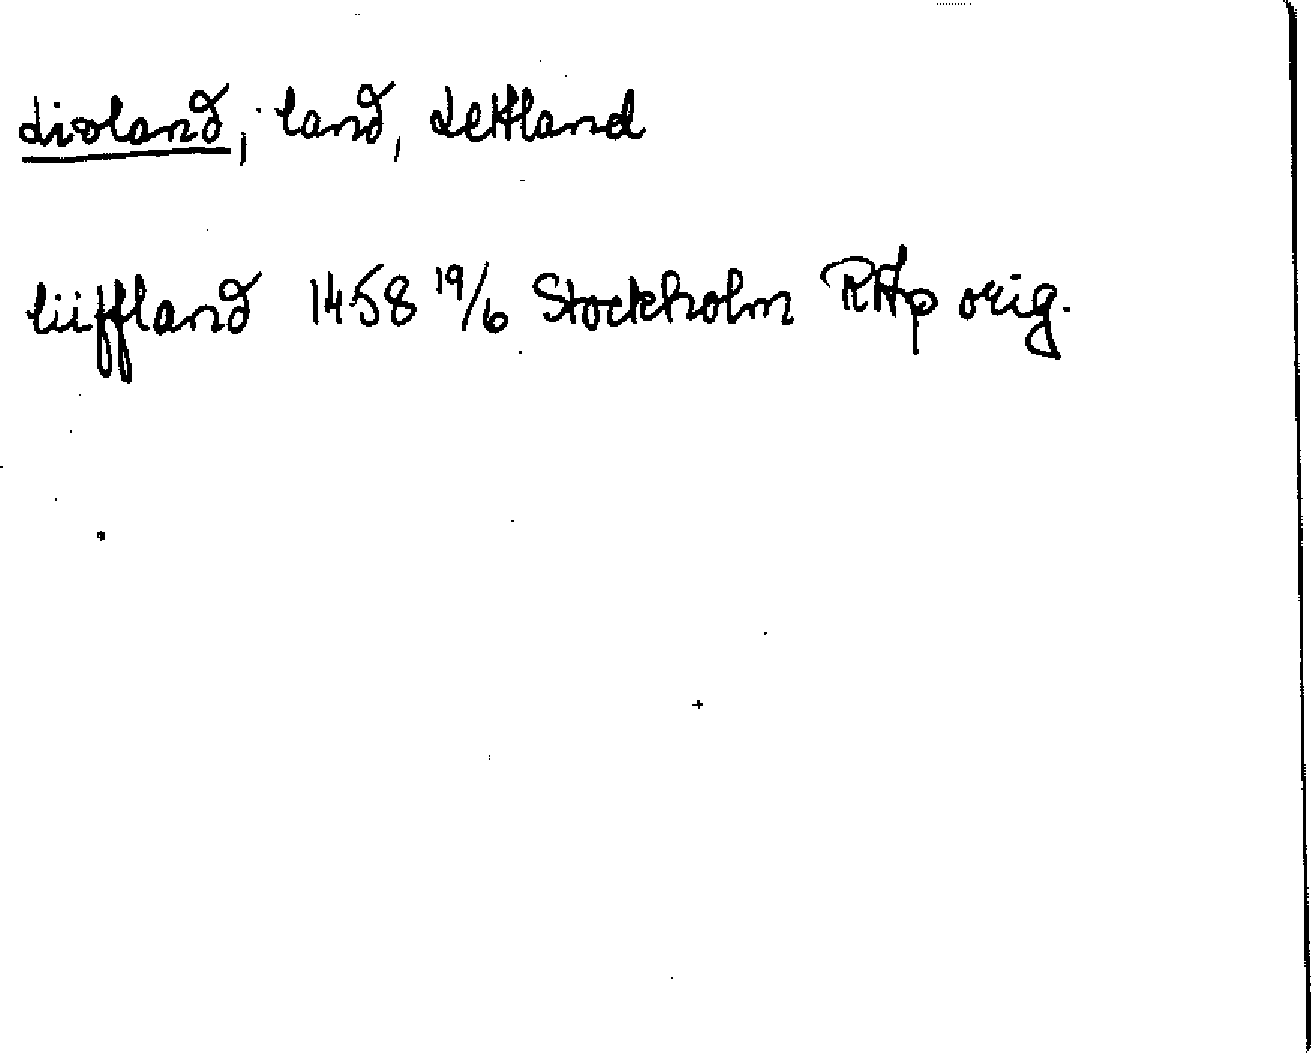 Livland, land, Lettland
liiffland 1458 19/6 Stockholm RAp orig.